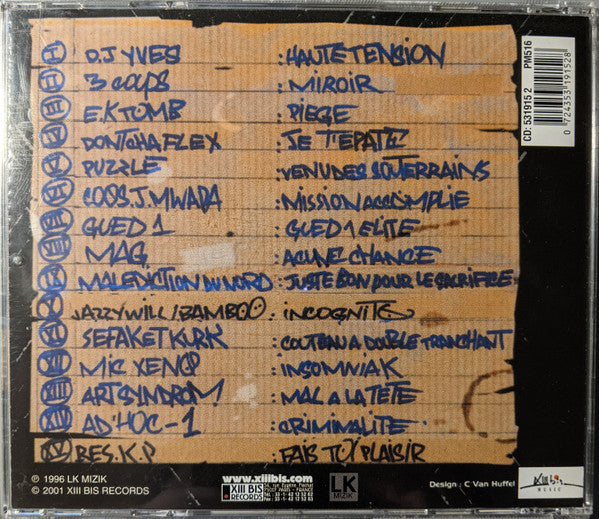 I D.J YVES : HAUTE TENSION
II 3 COUPS : MIROIR
III E.K TOMB : PIEGE
IV DONTCHA FLEX : JE T'EPATE
V PUZZLE : VENU DES SOUTERRAINS
VI COOS J. MWADA : MISSION ACCOMPLIE
VII GUED 1 : GUED 1 ELITE
VIII MAG : ACUNE CHANCE
IX MALEDICTION DU NORD : JUSTE BON POUR LE SACRIFICE
X JAZZY WILL / BAMBOO : INCOGNITO
XI SEFAKET KURK : COUTEAU A DOUBLE TRANCHANT
XII MIC XENCP : INSOMNIAK
XIII ART SYNDROM : MAL A LA TETE
XIV AD'HOC-1 : CRIMINALITE
XV BES.K.P : FAIS TOI PLAISIR
CD: 531915 2 PM516
0 724353 191528
℗ 1996 LK MIZIK
© 2001 XIII BIS RECORDS
www.xiiibis.com
XIII BIS RECORDS
LK MIZIK
Design : C Van Huffel
XIII Bis
MUSIC